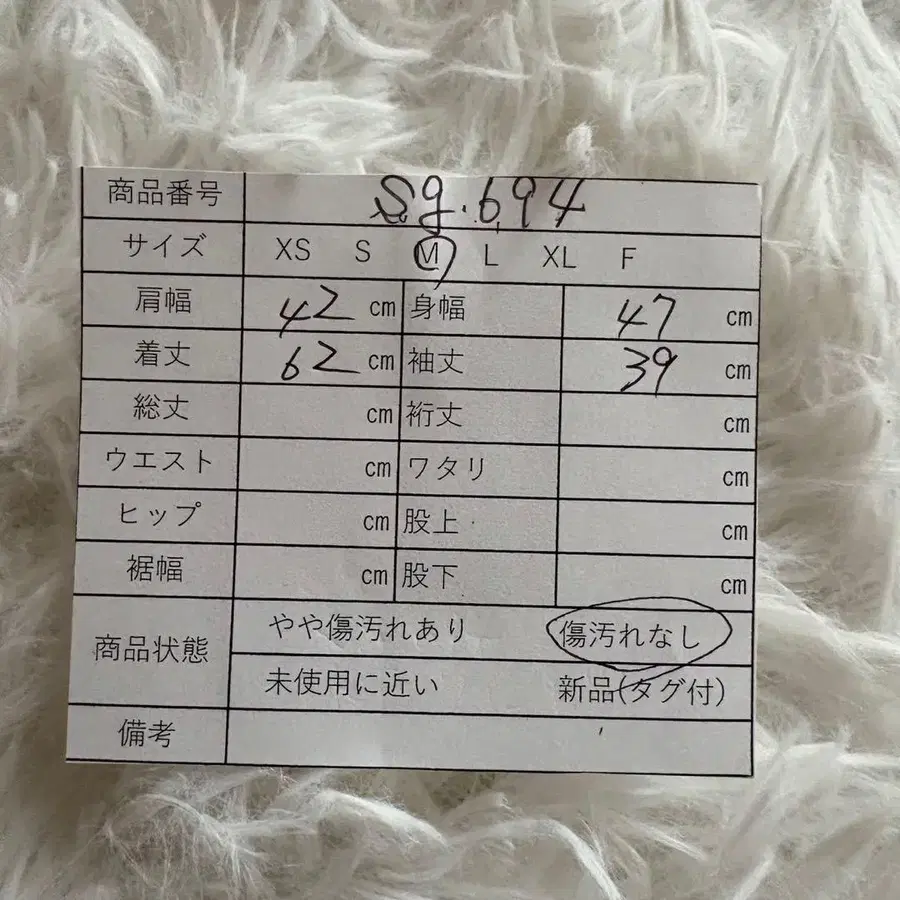 商品番号 sg.694
サイズ XS S M L XL F
肩幅 42 cm 身幅 47 cm
着丈 62 cm 袖丈 39 cm
総丈 cm 裄丈 cm
ウエスト cm ワタリ cm
ヒップ cm 股上 cm
裾幅 cm 股下 cm
商品状態 やや傷汚れあり 傷汚れなし
未使用に近い 新品(タグ付)
備考